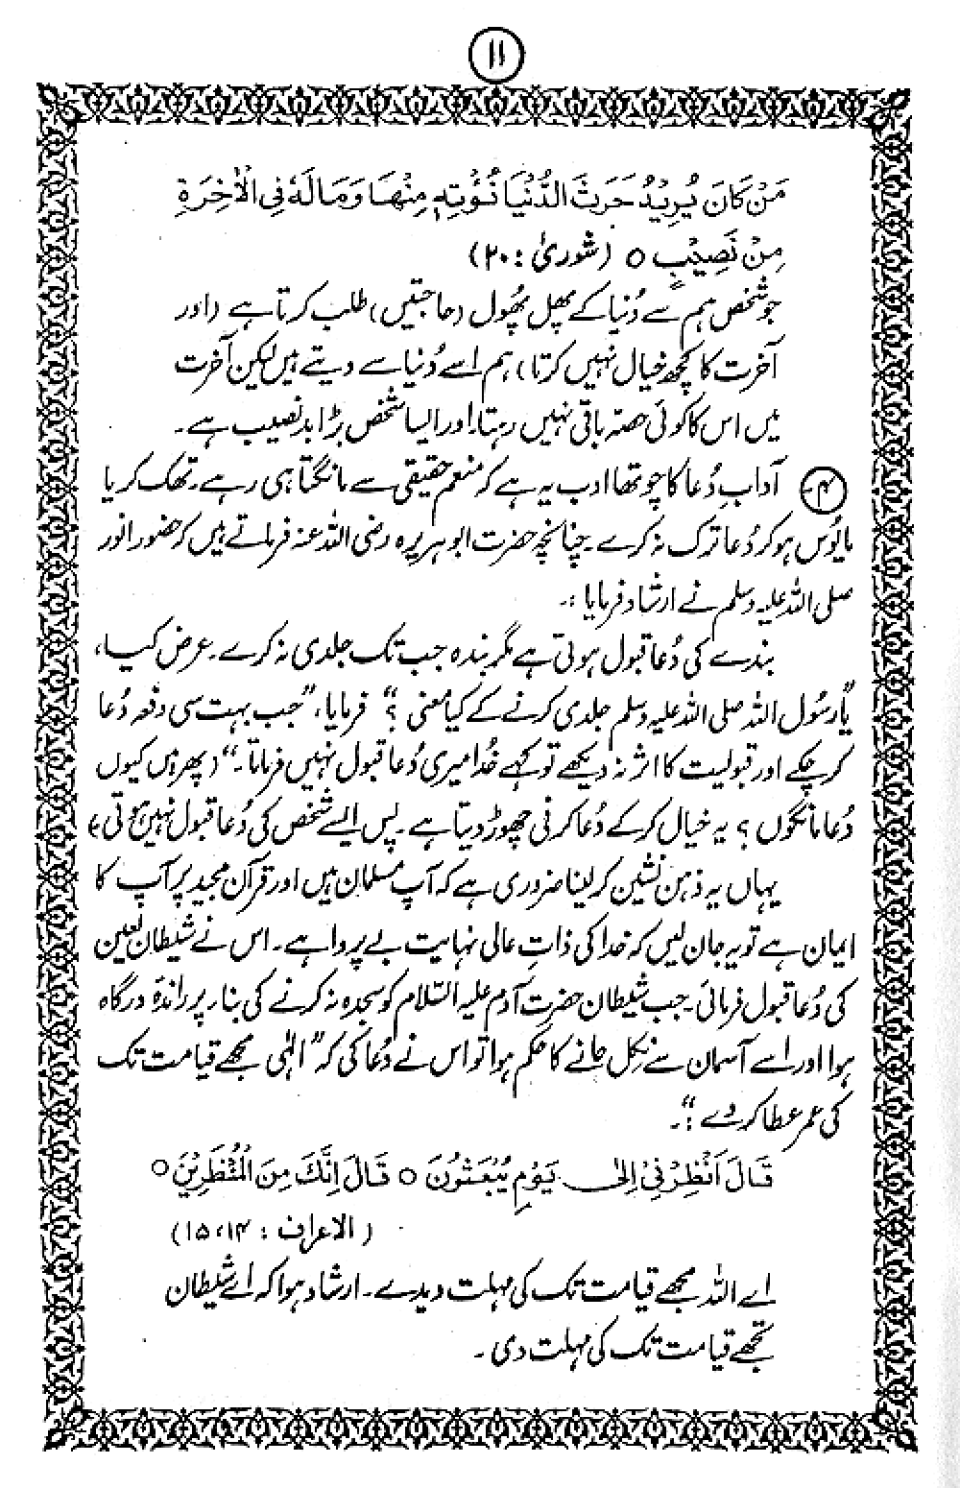 ۱۱
مَنْ كَانَ يُرِيْدُ حَرْثَ الدُّنْيَا نُؤْتِهٖ مِنْهَا وَمَا لَهٗ فِى الْاٰخِرَةِ
مِنْ نَصِيْبٍ ○ (شورىٰ : ۲۰)
جو شخص ہم سے دُنیا کے پھل پھُول (حاجتیں) طلب کرتا ہے (اور
آخرت کا کچھ خیال نہیں کرتا) ہم اسے دُنیا سے دیتے ہیں لیکن آخرت
میں اس کا کوئی حصہ باقی نہیں رہتا۔ اور ایسا شخص بڑا بدنصیب ہے۔
۴۔ آدابِ دُعا کا چوتھا ادب یہ ہے کہ منعم حقیقی سے مانگتا ہی رہے۔ تھک کر یا
مایُوس ہو کر دُعا ترک نہ کرے۔ چنانچہ حضرت ابوہریرہ رضی اللہ عنہ فرماتے ہیں کہ حضور انور
صلی اللہ علیہ وسلم نے ارشاد فرمایا :۔
بندے کی دُعا قبول ہوتی ہے مگر بندہ جب تک جلدی نہ کرے۔ عرض کیا،
"یا رسُول اللہ صلی اللہ علیہ وسلم جلدی کرنے کے کیا معنی ؟" فرمایا، "جب بہت سی دفعہ دُعا
کر چکے اور قبولیت کا اثر نہ دیکھے تو کہے خُدا میری دُعا قبول نہیں فرماتا۔" (پھر میں کیوں
دُعا مانگوں ؟ یہ خیال کر کے دُعا کرنی چھوڑ دیتا ہے۔ پس ایسے شخص کی دُعا قبول نہیں ہوتی)
یہاں یہ ذہن نشین کر لینا ضروری ہے کہ آپ مسلمان ہیں اور قرآن مجید پر آپ کا
ایمان ہے تو یہ جان لیں کہ خدا کی ذاتِ عالی نہایت بے پرواہے۔ اس نے شیطان لعین
کی دُعا قبول فرمائی۔ جب شیطان حضرت آدم علیہ السّلام کو سجدہ نہ کرنے کی بنا پر راندۂ درگاہ
ہوا اور اسے آسمان سے نکل جانے کا حکم ہوا تو اس نے دُعا کی کہ "الٰہی مجھے قیامت تک
کی عمر عطا کر دے :"۔
قَالَ اَنْظِرْنِىْ اِلٰى يَوْمِ يُبْعَثُوْنَ ○ قَالَ اِنَّكَ مِنَ الْمُنْظَرِيْنَ ○
(الاعراف : ۱۴،۱۵)
اے اللہ مجھے قیامت تک کی مہلت دیدے۔ ارشاد ہوا کہ اے شیطان
تجھے قیامت تک کی مہلت دی۔